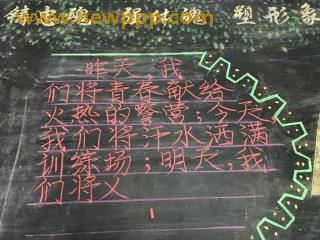 www.newppp.com
塑形象
昨天,我
们将青春献给
火热的警营;今天,
我们将汗水洒满
训练场;明天,我
们将义